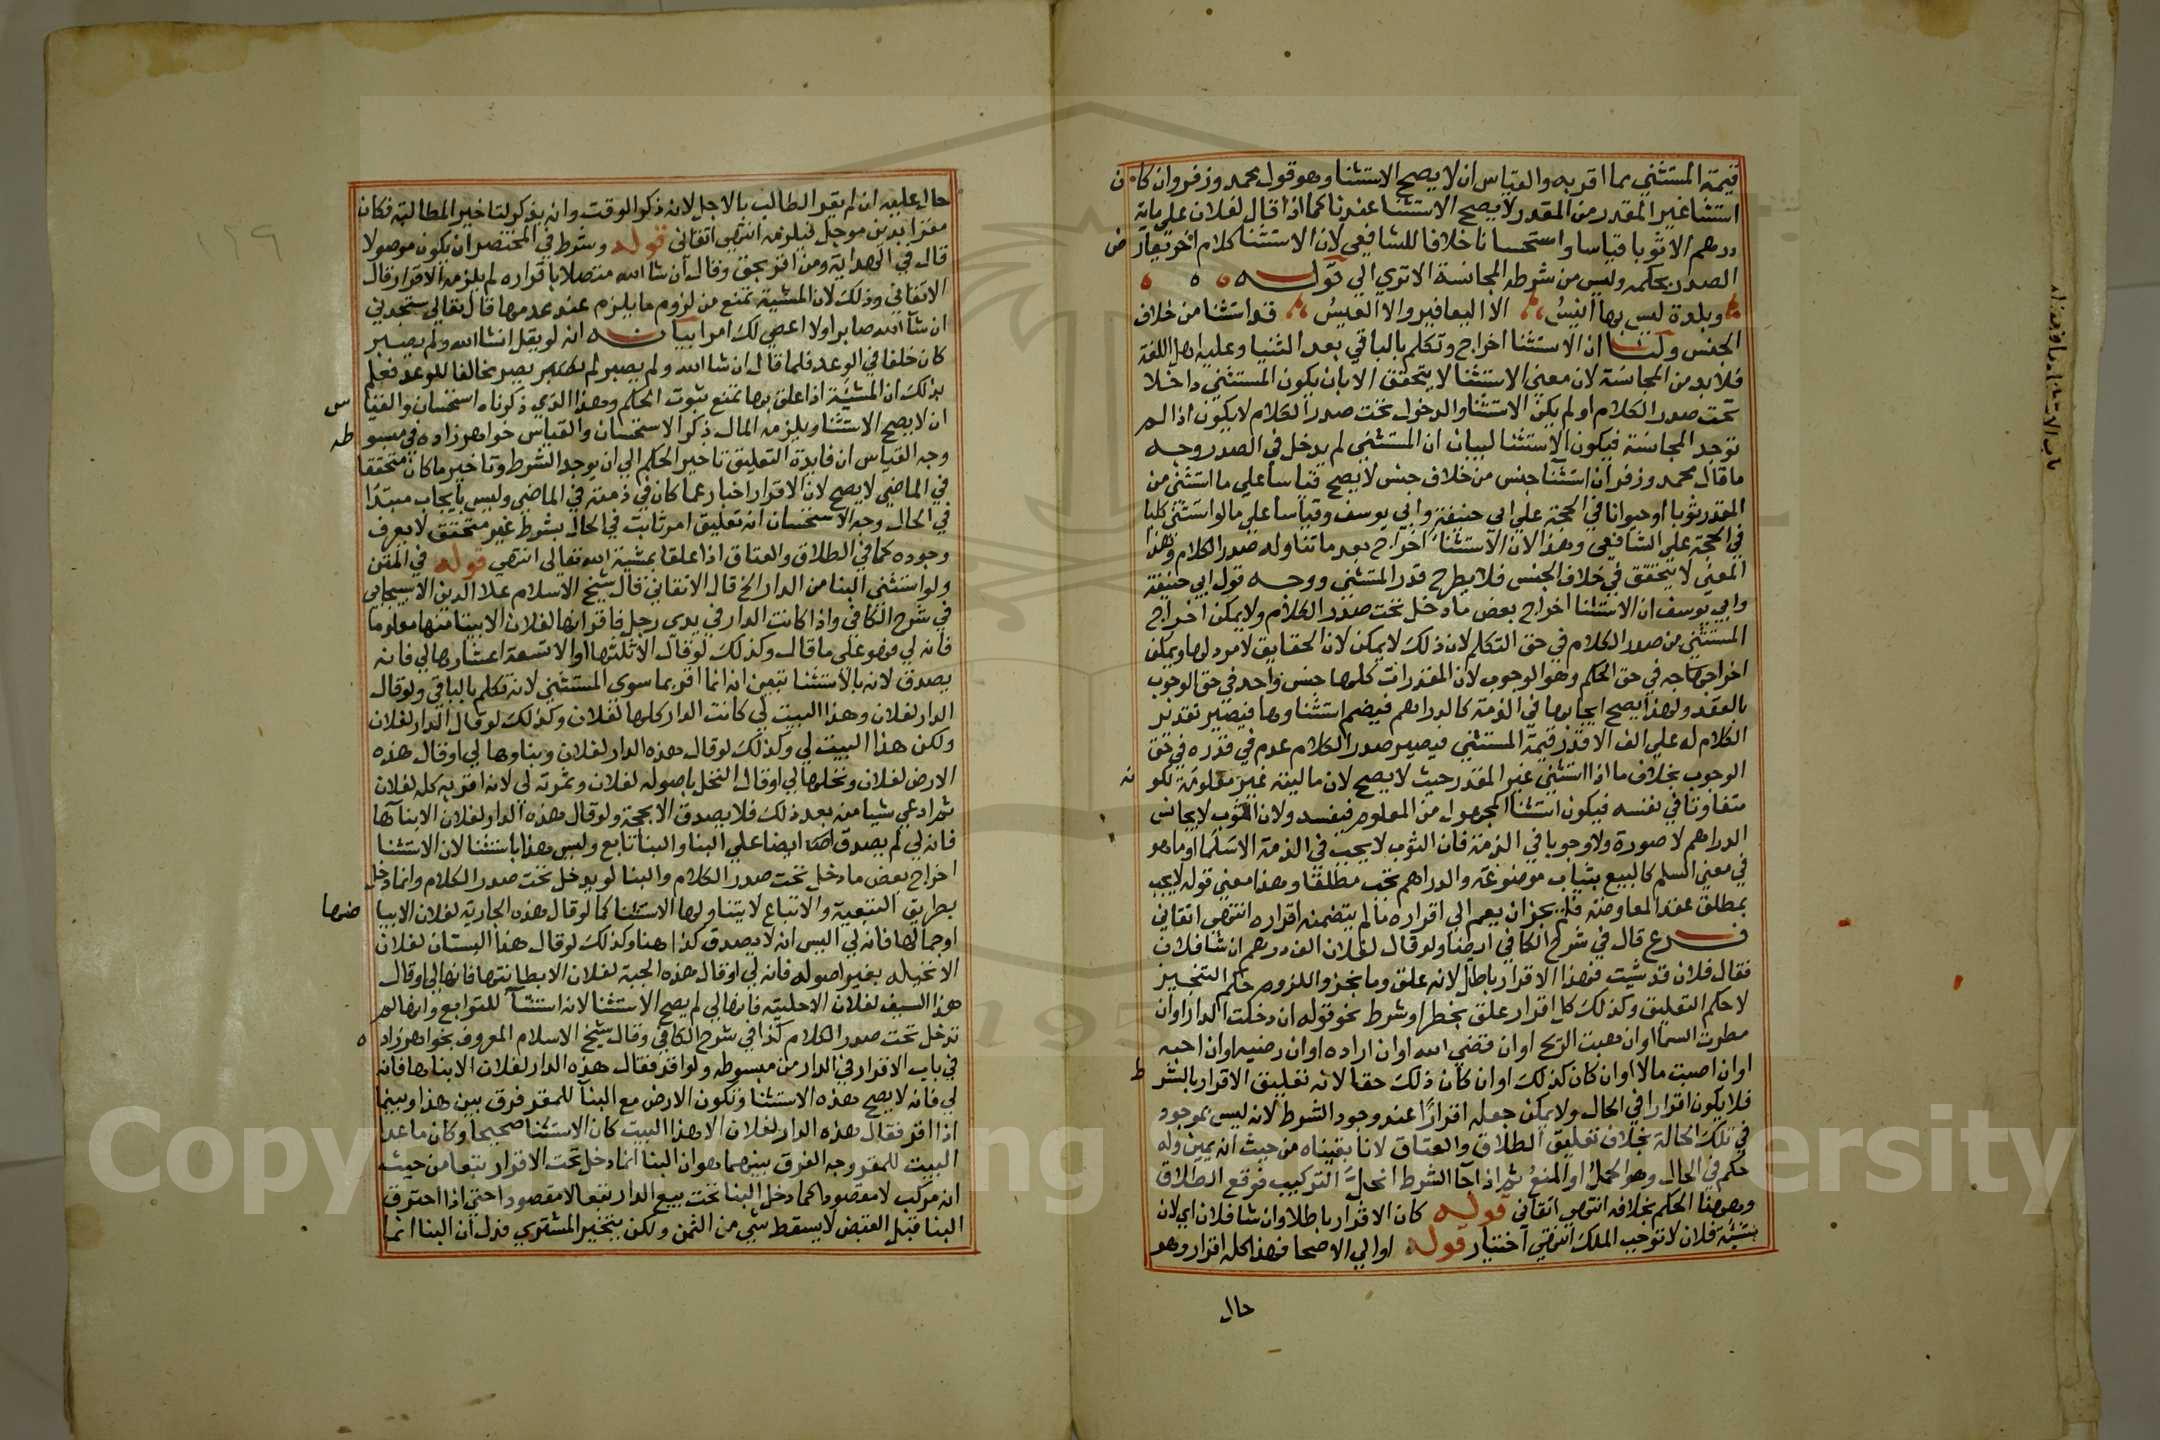 قيمة المستثني مما اقر به والقياس ان لا يصح الاستثنا وهو قول محمد وزفر وان كان
استثنا غير المقدر من المقدر لا يصح الاستثنا عندنا كما اذا قال لفلان علي ماية
درهم الا ثوبا قياسا واستحسانا خلافا للشافعي لان الاستثنا كلام اخر يعارض
الصدر بحكمه وليس من شرطه المجانسة الا تري الي قوله
وبلدة ليس بها انيسُ الا اليعافير والا العيسُ قد استثنا من خلاف
الجنس ولنا ان الاستثنا اخراج وتكلم بالباقي بعد الثنيا وعليه اهل اللغة
فلا بد من المجانسة لان معني الاستثنا لا يتحقق الا بان يكون المستثني داخلا
تحت صدر الكلام او لم يكن الاستثنا والدخول تحت صدر الكلام لا يكون اذا لم
توجد المجانسة فيكون الاستثنا لبيان ان المستثني لم يدخل في الصدر وجه
ما قال محمد وزفر ان استثنا جنس من خلاف جنس لا يصح قياسا علي ما استثني من
المقدر ثوبا او حيوانا في الحجة علي ابي حنيفة وابي يوسف وقياسا علي ما لو استثني كلبا
في الحجة علي الشافعي وهذا لان الاستثنا اخراج بعد ما تناوله صدر الكلام وهذا
المعني لا يتحقق في خلاف الجنس فلا يطرح قدر المستثني ووجه قول ابي حنيفة
وابي يوسف ان الاستثنا اخراج بعض ما دخل تحت صدر الكلام ولا يمكن اخراج
المستثني من صدر الكلام في حق التكلم لان ذلك لا يمكن لان الحقايق لا مرد لها ويمكن
اخراجه في حق الحكم وهو الوجوب لان المقدرات كلها جنس واحد في حق الوجوب
بالعقد ولهذا يصح ايجابها في الذمة كالدراهم فيضم استثناوها فيصير تقدير
الكلام له علي الف الا قدر قيمة المستثني فيصير صدر الكلام عدم في قدره في حق
الوجوب بخلاف ما اذا استثني غير المقدر حيث لا يصح لان ماليته غير معلومة لكونه
متفاوتا في نفسه فيكون استثنا المجهول من المعلوم فيفسد ولان الثوب لا يجانس
الدراهم لا صورة ولا وجوبا في الذمة فان الثوب لا يجب في الذمة الا سَلَما او ما هو
في معني السلم كالبيع بثياب موضوعة والدراهم تجب مطلقا وهذا معني قوله لا يجب
بمطلق عقد المعاوضة فلم يجز ان يعم الي اقراره ما لم يتضمنه اقراره انتهي اتقاني
فرع قال في شرح الكافي ايضا ولو قال لفلان الف درهم ان شا فلان
فقال فلان قد شيت فهذا الاقرار باطل لانه علق وما نجز واللزوم حكم التنجيز
لا حكم التعليق وكذلك كل اقرار علق بخطر او شرط نحو قوله ان دخلت الدار او ان
مطرت السما او ان هبت الريح او ان قضي الله او ان اراده او ان رضيه او ان احبه
او ان اصبت مالا او ان كان كذلك او ان كان ذلك حقا لانه تعليق الاقرار بالشرط
فلا يكون اقرارا في الحال ولا يمكن جعله اقرارًا عند وجود الشرط لانه ليس بموجود
في تلك الحالة بخلاف تعليق الطلاق والعتاق لانا بقيناه من حيث انه يمين وله
حكم في الحال وهو الحمل او المنع ثم اذا جا الشرط انحل التركيب فوقع الطلاق
وههنا الحكم بخلافه انتهي اتقاني قوله كان الاقرار باطلا وان شا فلان اي لان
مشيّة فلان لا توجب الملك انتهي اختيار قوله او الي الاضحا فهذا كله اقرار وهو
حال
حال عليه ان لم يقر الطالب بالاجل لانه ذكر الوقت وانه يذكر لتاخير المطالبة فكان
مقرا بدين موجل فيلزمه انتهي اتقاني قوله وشرط في المختصر ان يكون موصولا
قال في الهداية ومن اقر بحق وقال ان شا الله متصلا باقراره لم يلزمه الاقرار وقال
الاتقاني وذلك لان المشية تمنع من لزوم ما يلزم عند عدمها قال تعالي ستجدني
ان شا الله صابرا ولا اعصي لك امرا بيانه انه لو يقل انشا الله ولم يصبر
كان خلفا في الوعد فلما قال ان شا الله ولم يصبر لم يصر مخالفا للوعد فعلم
بذلك ان المشيّة اذا علق بها تمنع ثبوت الحكم وهذا الذي ذكرناه استحسان والقياس
ان لا يصح الاستثنا ويلزمه المال ذكر الاستحسان والقياس خواهر زاده في مبسوطه
وجه القياس ان فايدة التعليق تاخير الحكم الي ان يوجد الشرط وتاخير ما كان متحققا
في الماضي لا يصح لان الاقرار اخبار عما كان في ذمته في الماضي وليس بايجاب مبتدًا
في الحال وجه الاستحسان انه تعليق امر ثابت في الحال بشرط غير متحقق لا يعرف
وجوده كما في الطلاق والعتاق اذا علقا بمشية الله تعالي انتهي قوله في المتن
ولو استثني البنا من الدار الخ قال الاتقاني قال شيخ الاسلام علا الدين الاسبيجابي
في شرح الكافي واذا كانت الدار في يدي رجل فاقر انها لفلان الا بيتا منها معلوما
فانه لي فهو علي ما قال وكذلك لو قال الا ثلثها او الا تسعة اعشارها لي فانه
يصدق لانه بالاستثنا تبين انه انما اقر بما سوي المستثني لانه تكلم بالباقي ولو قال
الدار لفلان وهذا البيت لي كانت الدار كلها لفلان وكذلك لو قال الدار لفلان
ولكن هذا البيت لي وكذلك لو قال هذه الدار لفلان وبناوها لي او قال هذه
الارض لفلان ونخلها لي او قال النخل باصوله لفلان وثمرته لي لانه اقر به كله لفلان
ثم ادعي شيا منه بعد ذلك فلا يصدق الا بحجة ولو قال هذه الدار لفلان الا بناها
فانه لي لم يصدق ايضا علي البنا والبنا تابع وليس هذا باستثنا لان الاستثنا
اخراج بعض ما دخل تحت صدر الكلام والبنا لو يدخل تحت صدر الكلام وانما دخل
بطريق التبعية والاتباع لا يتناولها الاستثنا كما لو قال هذه الجارية لفلان الا بياضها
او جمالها فانه لي اليس انه لا يصدق كذا هنا وكذلك لو قال هذا البستان لفلان
الا نخله بغير اصوله فانه لي او قال هذه الجبة لفلان الا بطانتها فانها لي او قال
هذا السيف لفلان الا حليته فانها لي لم يصح الاستثنا لانه استثنا للتوابع وانها لم
تدخل تحت صدر الكلام كذا في شرح الكافي وقال شيخ الاسلام المعروف بخواهر زاده
في باب الاقرار في الدار من مبسوطه ولو اقر فقال هذه الدار لفلان الا بناها فانه
لي فانه لا يصح هذه الاستثنا وتكون الارض مع البنا للمقر فرق بين هذا وبينما
اذا اقر فقال هذه الدار لفلان الا هذا البيت كان الاستثنا صحيحا وكان ما عدا
البيت للمقر وجه الفرق بينهما هو ان البنا انما دخل تحت الاقرار تبعا من حيث
انه مركب لا مقصودا كما دخل البنا تحت بيع الدار تبعا لا مقصودا حتي اذا احترق
البنا قبل القبض لا يسقط شي من الثمن ولكن يتخير المشتري فدل ان البنا انما